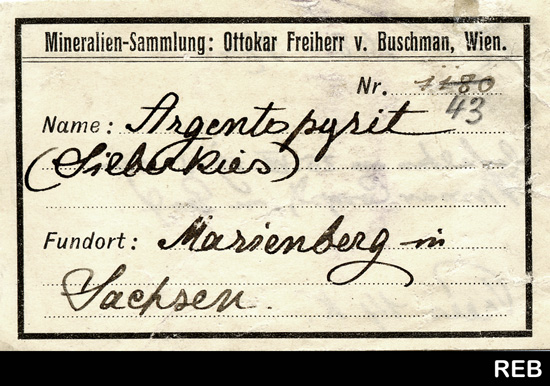 Mineralien-Sammlung: Ottokar Freiherr v. Buschman, Wien.
Nr. 1180
43
Name: Argentopyrit
(Silberkies)
Fundort: Marienberg in
Sachsen.
REB